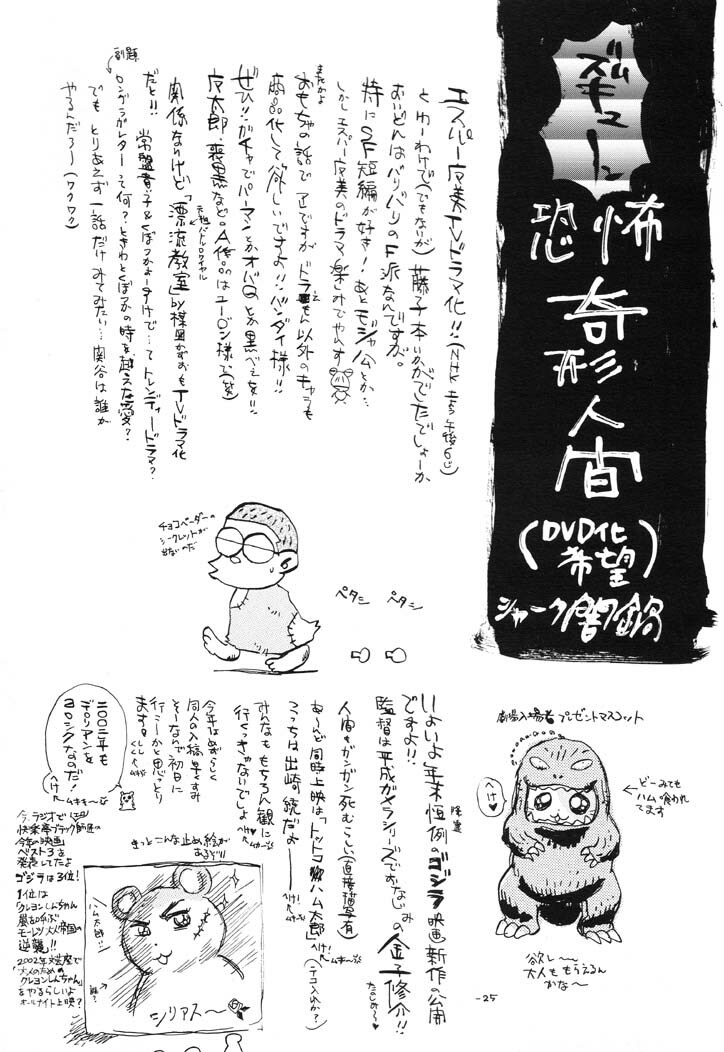 ズギューム
恐怖
奇形人間
(DVD化希望)
シャーク闇鍋
エスパー魔美TVドラマ化!!(NHK 土5午後6じ)
とゆーわけで(でもないが)藤子本いかがでしたでしょーか
おいどんはバリバリのF派なんですが。
特にSF短編が好き!あとモジャ公とか…
しかしエスパー魔美のドラマ楽しみでやんす
またかよ
おもちゃの話で アレですが ドラえもん以外のキャラも
商品化して欲しいですよ!!バンダイ様!!
ぜひ!!ガチャでパーマンとかオバQとか黒べえを!!
魔太郎、喪黒などの A作品はユージン様で(笑)
元祖バトルロワイヤル
関係ないけど「漂流教室」by楳図かずおもTVドラマ化
だと!! 常盤貴子&くぼづかよーすけで…ってトレンディードラマ?
副題
ロングラブレターって何?ときわとくぼづかの時を越えた愛?
でも とりあえず一話だけみてみたい…関谷は誰が
やるんだろー(ワクワク)
チョコベーダーの
シークレットが
出ないのだ
ペタシ ペタシ
劇場入場者プレゼントマスコット
へけ♥
どーみても
ハム喰われ
てます
欲し〜
大人ももらえるん
かな〜
いよいよ年末恒例のゴジラ映画新作の公開
ですよ!!
監督は平成ガメラシリーズでおなじみの金子修介!!
たのしみ〜♥
人間もガンガン死むらしい(直接描写有)
あ〜んど同時上映は「トットコハム太郎」
(テコ入れか?)
こっちは出崎 統だよ――
みんなももちろん観に
行くっきゃないでしょ
今年はめずらしく
同人の入稿早くすみ
そーなんで初日に
行こーかと思っとり
ます。
二〇〇二年も
デロリアンを
ヨロシクなのだ!
へけ
きっとこんな止め絵が
あるぞ!!
ハム太郎!!
誰?
シリアス〜
今、ラジオで
快楽亭ブラック師匠の
今年の映画
ベスト3を
発表してたよ
ゴジラは3位!
1位は
クレヨンしんちゃん
嵐を呼ぶ
モーレツ大人帝国の
逆襲!!
2002年文芸座で
「大人のための
クレヨンしんちゃん」
をやるらしいよ
オールナイト上映?
-25